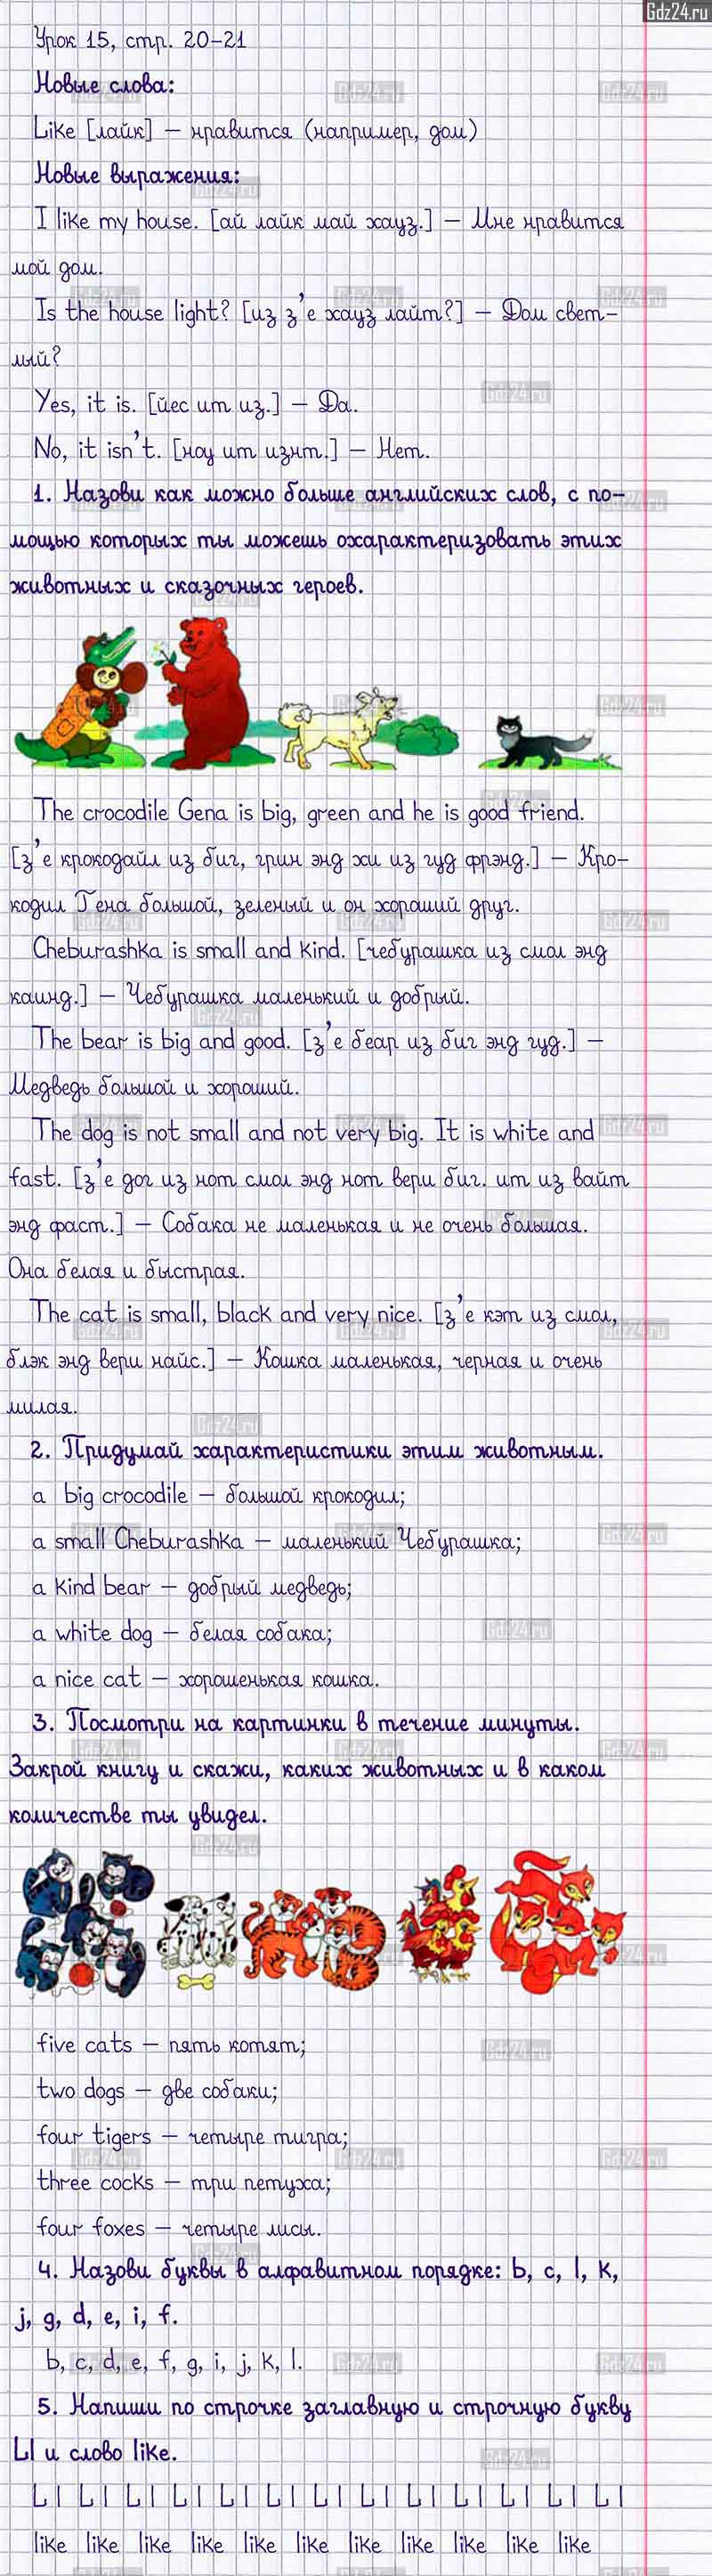 Gdz24.ru
Урок 15, стр. 20-21
Новые слова:
Like [лайк] – нравится (например, дом)
Новые выражения:
I like my house. [ай лайк май хауз.] – Мне нравится
мой дом.
Is the house light? [из з’е хауз лайт?] – Дом свет-
лый?
Yes, it is. [йес ит из.] – Да.
No, it isn’t. [ноу ит изнт.] – Нет.
1. Назови как можно больше английских слов, с по-
мощью которых ты можешь охарактеризовать этих
животных и сказочных героев.
The crocodile Gena is big, green and he is good friend.
[з’е крокодайл из биг, грин энд хи из гуд фрэнд.] – Кро-
кодил Гена большой, зеленый и он хороший друг.
Cheburashka is small and kind. [чебурашка из смол энд
каинд.] – Чебурашка маленький и добрый.
The bear is big and good. [з’е беар из биг энд гуд.] –
Медведь большой и хороший.
The dog is not small and not very big. It is white and
fast. [з’е дог из нот смол энд нот вери биг. ит из вайт
энд фаст.] – Собака не маленькая и не очень большая.
Она белая и быстрая.
The cat is small, black and very nice. [з’е кэт из смол,
блэк энд вери найс.] – Кошка маленькая, черная и очень
милая.
2. Придумай характеристики этим животным.
a big crocodile – большой крокодил;
a small Cheburashka – маленький Чебурашка;
a kind bear – добрый медведь;
a white dog – белая собака;
a nice cat – хорошенькая кошка.
3. Посмотри на картинки в течение минуты.
Закрой книгу и скажи, каких животных и в каком
количестве ты увидел.
five cats – пять котят;
two dogs – две собаки;
four tigers – четыре тигра;
three cocks – три петуха;
four foxes – четыре лисы.
4. Назови буквы в алфавитном порядке: b, c, l, k,
j, g, d, e, i, f.
b, c, d, e, f, g, i, j, k, l.
5. Напиши по строчке заглавную и строчную букву
Ll и слово like.
L l L l L l L l L l L l L l L l L l L l L l L l L l
like like like like like like like like like like like